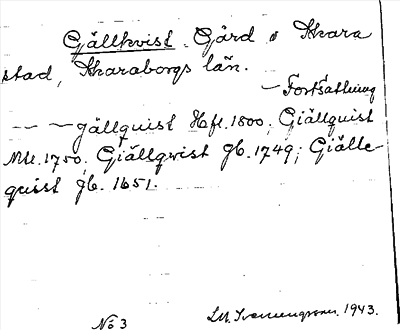 Gällkvist. Gård i Skara
stad, Skaraborgs län.
— Fortsättning
— — gällquist Hfl. 1800; Giällquist
Mtl. 1750; Giällqvist Jb. 1749; Giälle-
quist Jb. 1651.
No 3 1943.